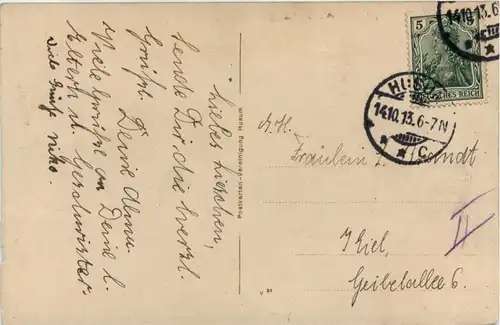 Liebes Lieschen,
sende Dir die herzl.
Grüße. Deine Anna.
Viele Grüße an Deine l.
Eltern u. Geschwister.
Viele Grüße Niko.
Postkarten-Vereinigung Husum
V 24
Fräulein L.
Kiel,
Geibelallee 6.
II
5
DEUTSCHES REICH
HUSUM
14.10.13.6-7N
14.10.13.6